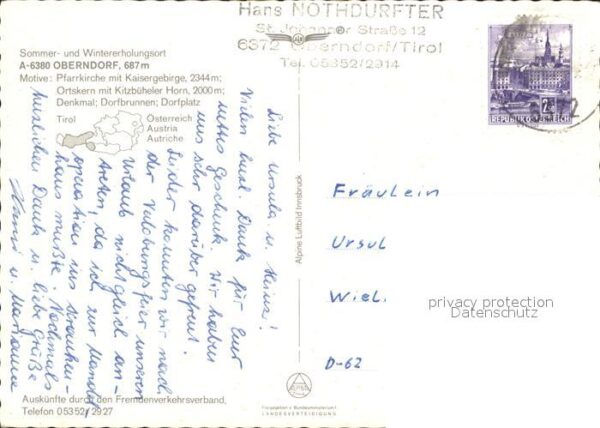 Hans NOTHDURFTER
St. Johanner Straße 12
6372 Oberndorf/Tirol
Tel. 05352/2914
Sommer- und Wintererholungsort
A-6380 OBERNDORF, 687 m
Motive: Pfarrkirche mit Kaisergebirge, 2344 m;
Ortskern mit Kitzbüheler Horn, 2000 m;
Denkmal; Dorfbrunnen; Dorfplatz
Tirol
Österreich
Austria
Autriche
Liebe Ursula u. Heinz!
Vielen herzl. Dank für Euer
nettes Geschenk. Wir haben
uns sehr darüber gefreut.
Leider konnten wir nach
der Verlobungsfeier unseren
Urlaub nicht gleich an-
treten, da ich zur Mandel
operation ins Kranken-
haus mußte. Nochmals
herzlichen Dank u. liebe Grüße
u. Marianne
Auskünfte durch den Fremdenverkehrsverband,
Telefon 05352/2927
Alpine Luftbild Innsbruck
Freigegeben v. Bundesministerium f.
LANDESVERTEIDIGUNG
2 S
REPUBLIK ÖSTERREICH
Fräulein
Ursul
Wiel.
D-62
privacy protection
Datenschutz